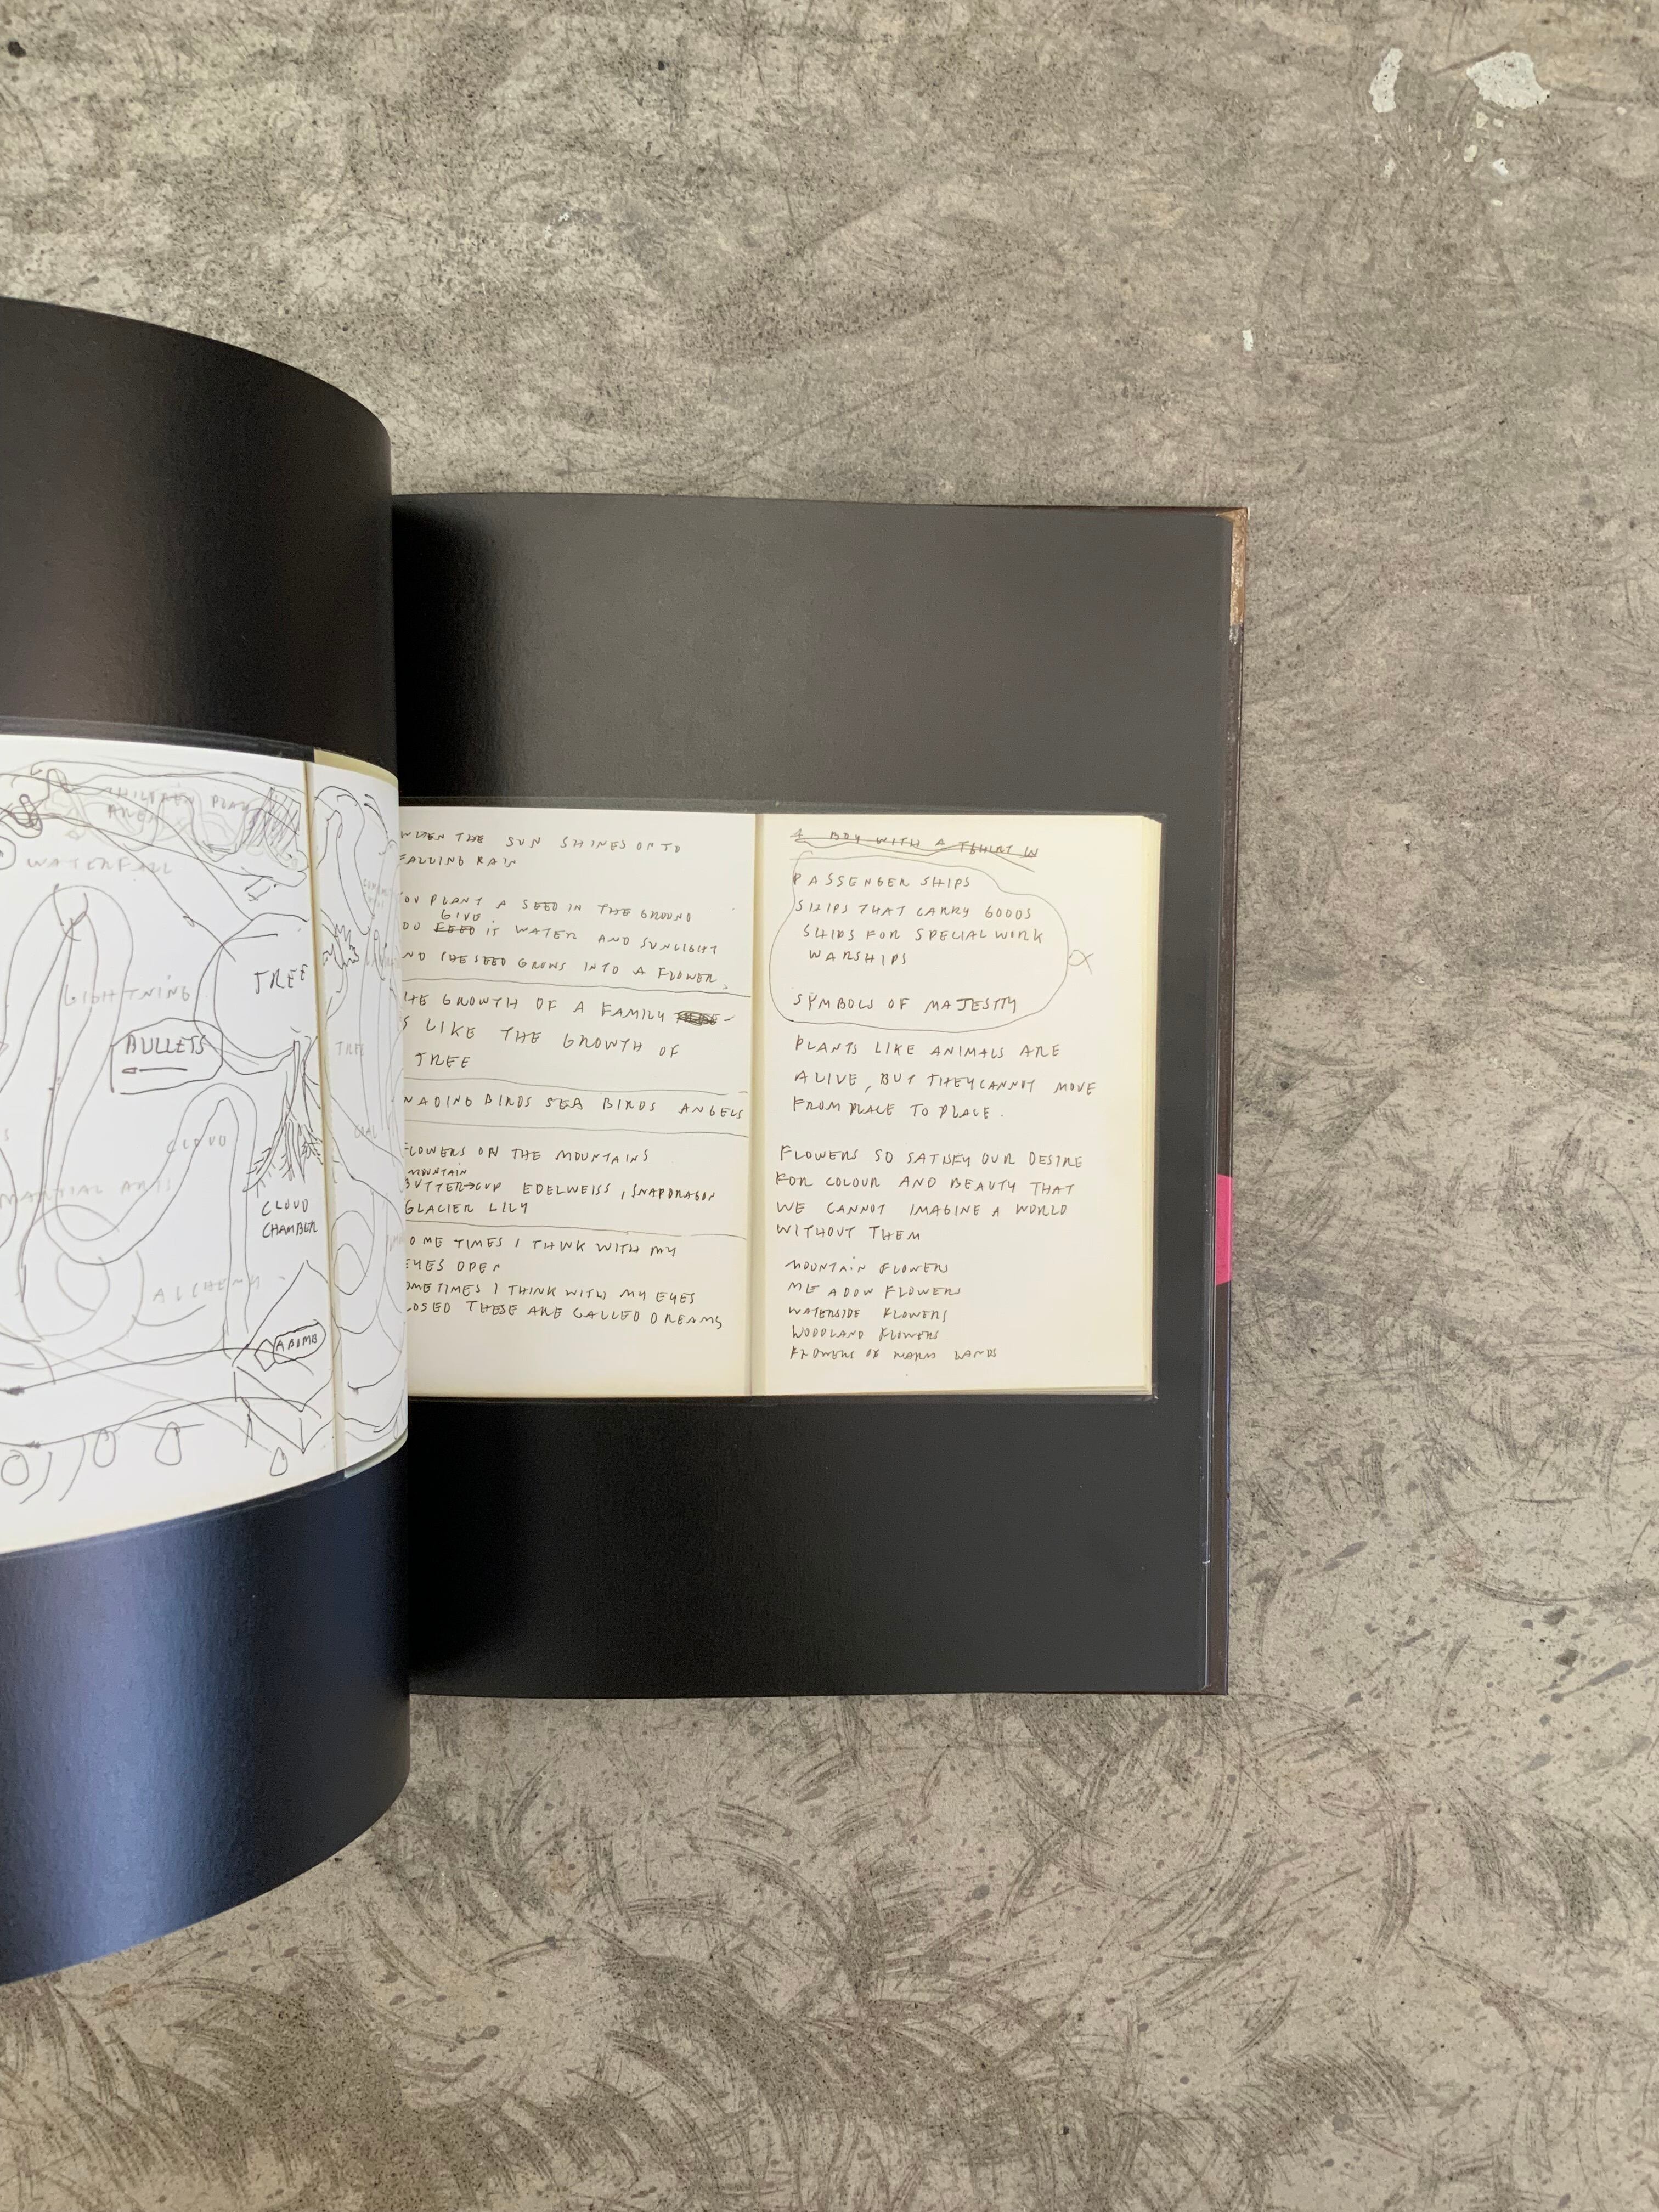 CHILDREN PLAY
AREA
WATERFALL
LIGHTNING
TREE
BULLETS
TREE
CLOUD
MARTIAL ARTS
CLOUD
CHAMBER
ALCHEMY
ABOMB
WHEN THE SUN SHINES ONTO
FALLING RAIN
YOU PLANT A SEED IN THE GROUND
GIVE
YOU FEED IT WATER AND SUNLIGHT
AND THE SEED GROWS INTO A FLOWER.
HE GROWTH OF A FAMILY
S LIKE THE GROWTH OF
TREE
WADING BIRDS SEA BIRDS ANGELS
FLOWERS ON THE MOUNTAINS
MOUNTAIN
BUTTERCUP EDELWEISS, SNAPDRAGON
GLACIER LILY
SOME TIMES I THINK WITH MY
EYES OPEN
OMETIMES I THINK WITH MY EYES
LOSED THESE ARE CALLED DREAMS
A BOY WITH A TSHIRT IN
PASSENGER SHIPS
SHIPS THAT CARRY GOODS
SHIPS FOR SPECIAL WORK
WARSHIPS
SYMBOLS OF MAJESTY
PLANTS LIKE ANIMALS ARE
ALIVE, BUT THEY CANNOT MOVE
FROM PLACE TO PLACE.
FLOWERS SO SATISFY OUR DESIRE
FOR COLOUR AND BEAUTY THAT
WE CANNOT IMAGINE A WORLD
WITHOUT THEM
MOUNTAIN FLOWERS
MEADOW FLOWERS
WATERSIDE FLOWERS
WOODLAND FLOWERS
FLOWERS OF WARM LANDS